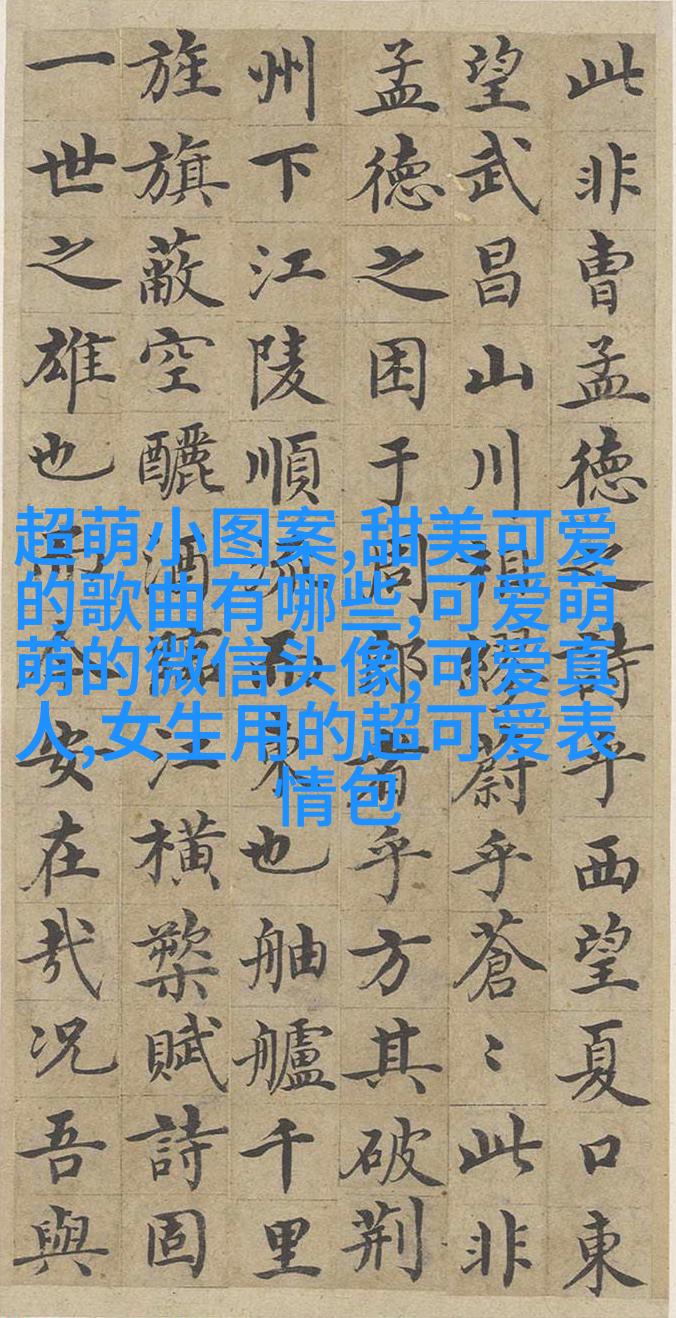 此非曹孟德之詩乎西望夏口東
望武昌山川相繆蔚乎蒼〻此非
孟德之困于周郎者乎方其破荆
州下江陵順流而東也舳艫千里
旌旗蔽空釃酒臨江橫槊賦詩固
一世之雄也而今安在哉况吾與
超萌小图案,甜美可爱
的歌曲有哪些,可爱萌
萌的微信头像,可爱真
人,女生用的超可爱表
情包